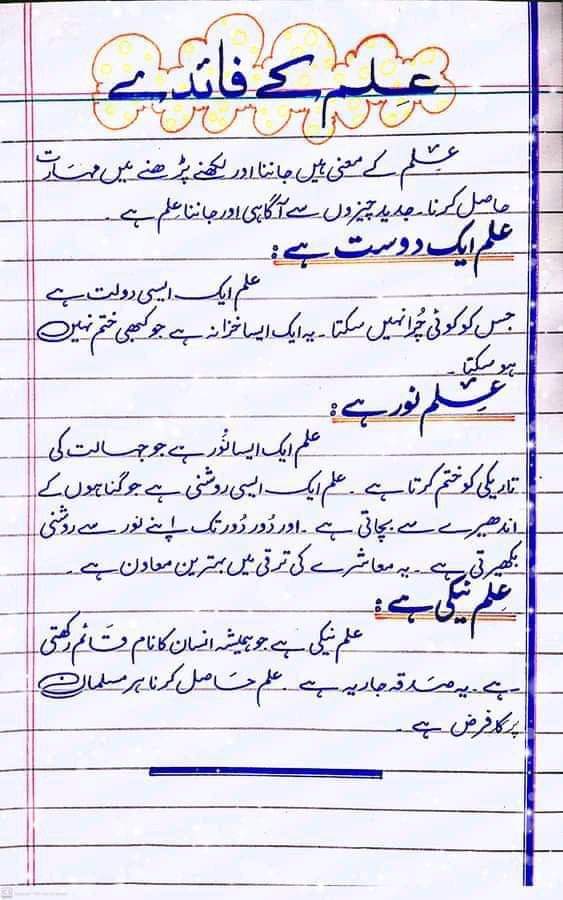 عِلم کے فائدے
عِلم کے معنی ہیں جاننا اور لکھنے پڑھنے میں مہَارت
حاصل کرنا۔ جدید چیزوں سے آگاہی اور جاننا عِلم ہے۔
علم ایک دوست ہے:
علم ایک ایسی دولت ہے
جس کو کوئی چُرا نہیں سکتا۔ یہ ایک ایسا خزانہ ہے جو کبھی ختم نہیں
ہو سکتا۔
عِلم نور ہے:
علم ایک ایسا نُور ہے جو جہالت کی
تاریکی کو ختم کرتا ہے۔ علم ایک ایسی روشنی ہے جو گناہوں کے
اندھیرے سے بچاتی ہے۔ اور دُور دُور تک اپنے نور سے روشنی
بکھیرتی ہے۔ یہ معاشرے کی ترقی میں بہترین معاون ہے۔
عِلم نیکی ہے:
علم نیکی ہے جو ہمیشہ انسان کا نام قَائم رکھتی
ہے۔ یہ صَدقہ جاریہ ہے۔ علم حَاصل کرنا ہر مسلمان
پر کا فرض ہے۔